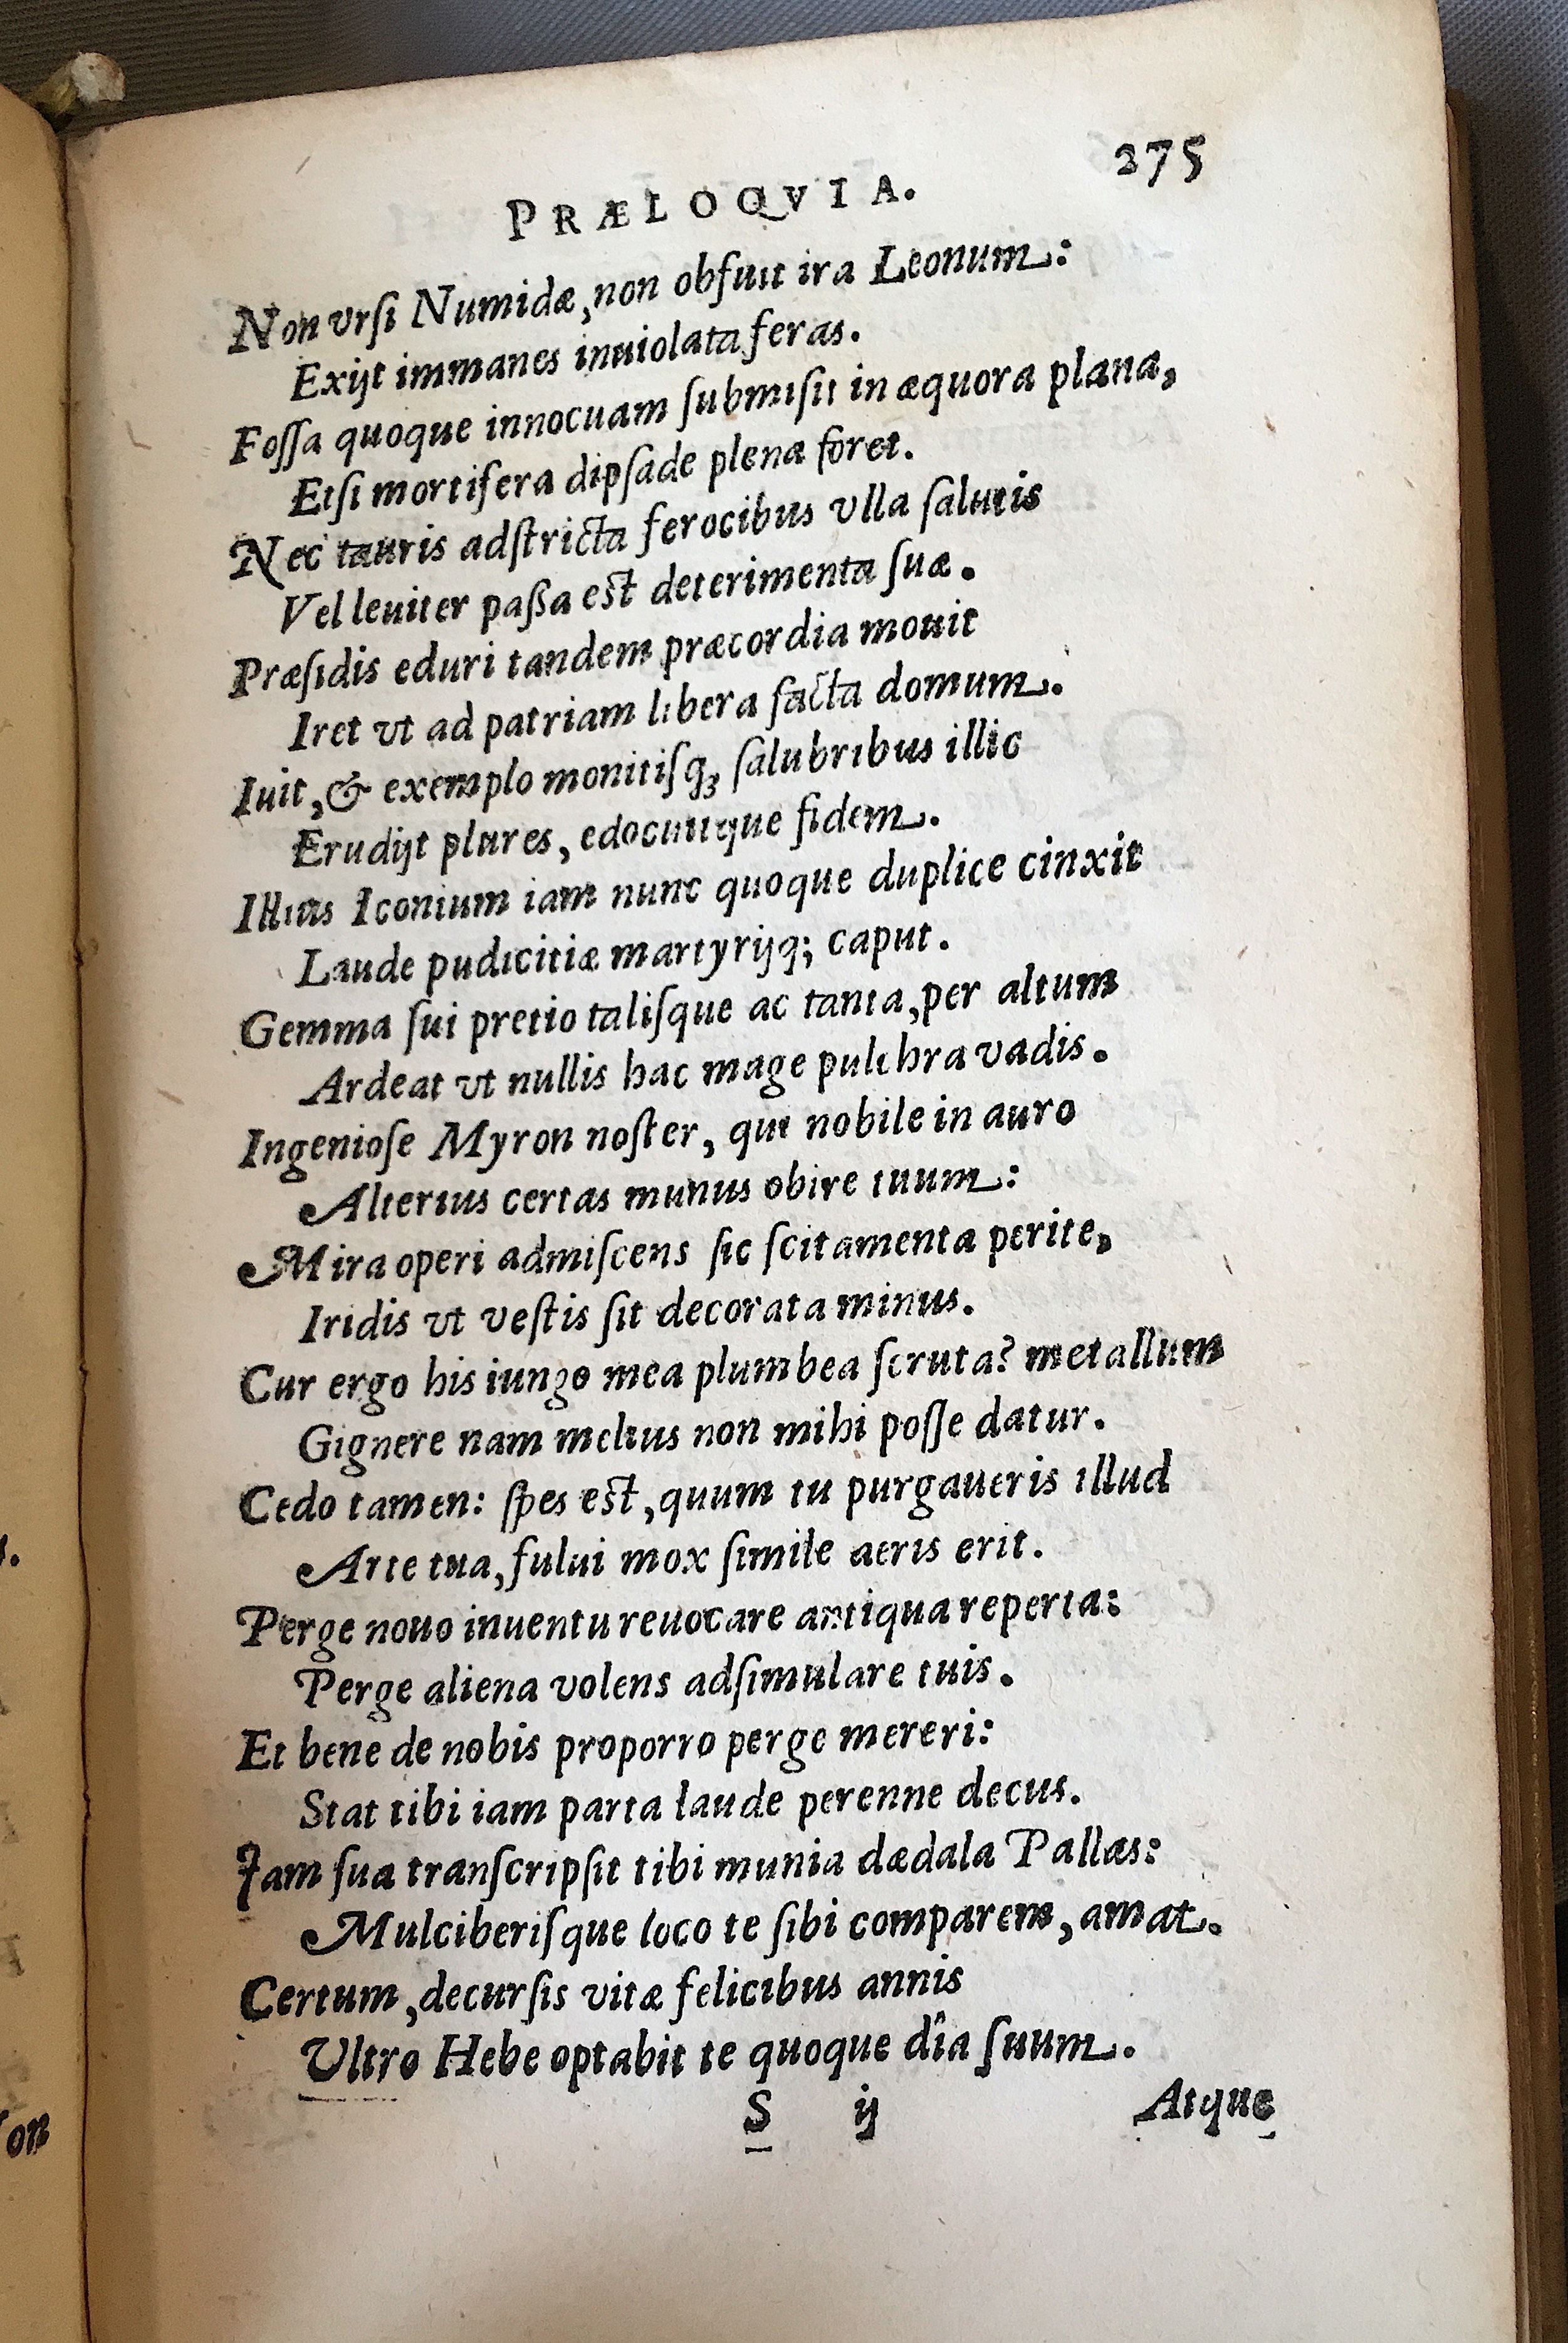 275
PRÆLOQVIA.
Non vrſi Numidæ, non obfuit ira Leonum:
Exijt immanes inuiolata feras.
Foſſa quoque innocuam ſubmiſit in æquora plana,
Etſi mortifera dipſade plena foret.
Nec tauris adſtricta ferocibus vlla ſalutis
Vel leuiter paßa eſt deterimenta ſuæ.
Præſidis eduri tandem præcordia mouit
Iret vt ad patriam libera facta domum.
Iuit, & exemplo monitiſq; ſalubribus illic
Erudijt plures, edocuitque fidem.
Illius Iconium iam nunc quoque duplice cinxit
Laude pudicitiæ martyrijq; caput.
Gemma ſui pretio taliſque ac tanta, per altum
Ardeat vt nullis hac mage pulchra vadis.
Ingenioſe Myron noſter, qui nobile in auro
Alterius certas munus obire tuum:
Mira operi admiſcens ſic ſcitamenta perite,
Iridis vt veſtis ſit decorata minus.
Cur ergo his iungo mea plumbea ſcruta? metallum
Gignere nam melius non mihi poſſe datur.
Cedo tamen: ſpes eſt, quum tu purgaueris illud
Arte tua, fului mox ſimile aeris erit.
Perge nouo inuentu reuocare antiqua reperta:
Perge aliena volens adſimulare tuis.
Et bene de nobis proporro perge mereri:
Stat tibi iam parta laude perenne decus.
Jam ſua tranſcripſit tibi munia dædala Pallas:
Mulciberiſque loco te ſibi comparem, amat.
Certum, decurſis vitæ felicibus annis
Vltro Hebe optabit te quoque dîa ſuum.
S ij Atque
on